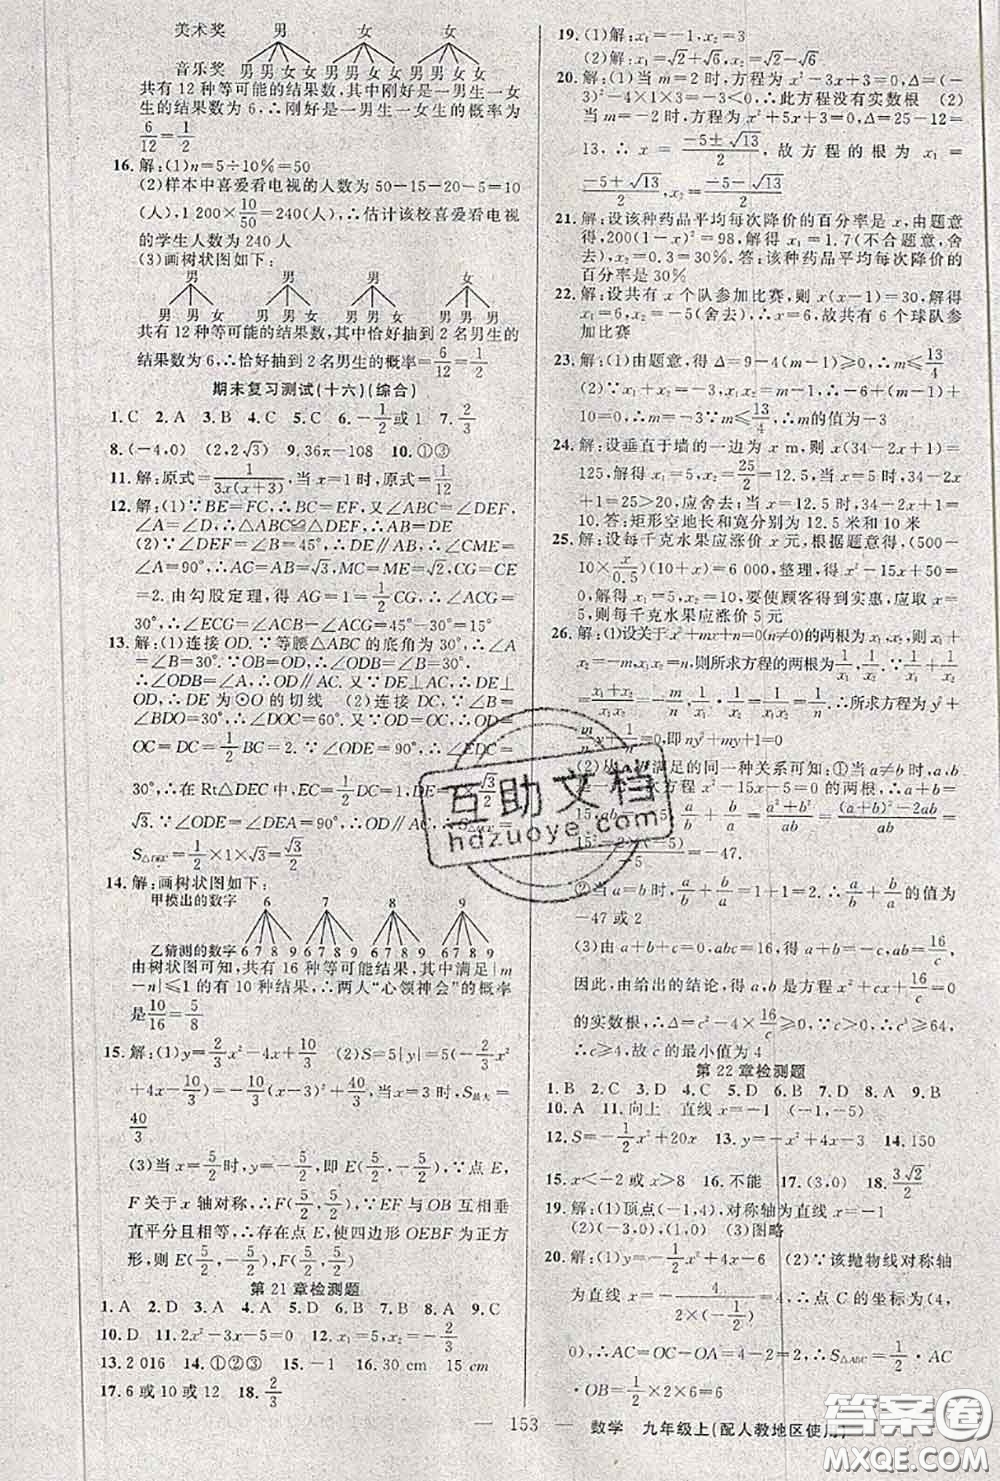 美术奖 男 女 女
音乐奖 男 男 女 女 男 男 女 女 男 男 女 女
共有 12 种等可能的结果数,其中刚好是一男生一女
生的结果数为 6,∴刚好是一男生一女生的概率为
6/12=1/2
16. 解:(1)n=5÷10%=50
(2)样本中喜爱看电视的人数为 50-15-20-5=10
(人),1 200×10/50=240(人),∴估计该校喜爱看电视
的学生人数为 240 人
(3)画树状图如下:
共有 12 种等可能的结果数,其中恰好抽到 2 名男生的
结果数为 6,∴恰好抽到 2 名男生的概率=6/12=1/2
期末复习测试(十六)(综合)
1.C 2.A 3.B 4.C 5.C 6.-1/2或 1 7.2/3
8.(-4,0) (2,2√3) 9.36π-108 10.①③
11. 解:原式=1/(3x(x+3)),当 x=1时,原式=1/12
12. 解:(1)∵BE=FC,∴BC=EF,又∠ABC=∠DEF,
∠A=∠D,∴△ABC≌△DEF,∴AB=DE
(2)∵∠DEF=∠B=45°,∴DE∥AB,∴∠CME=
∠A=90°,∴AC=AB=√3,MC=ME=√2,∴CG=CE
=2. 由勾股定理,得 AG=1=1/2CG,∴∠ACG=
30°,∴∠ECG=∠ACB-∠ACG=45°-30°=15°
13. 解:(1)连接 OD. ∵等腰△ABC 的底角为 30°,∴
∠A=∠B=30°. ∵OB=OD,∴∠ODB=∠B=30°,∴
∠A=∠ODB=30°,∴OD∥AC. 又 DE⊥AC,∴DE⊥
OD,∴DE 为⊙O 的切线 (2)连接 DC, ∵∠B=
∠ODB=30°,∴∠DOC=60°,∴△ODC 为等边三角形,∴OD=
OC=DC=1/2BC=2. ∵∠ODE=90°,∴∠EDC=
30°,∴在 Rt△DEC 中,EC=1/2DC=1,DE=
√3. ∵∠ODE=∠DEA=90°,∴OD∥AC,∴
=1/2×1×√3=√3/2
14. 解:画树状图如下:
甲摸出的数字 6 7 8 9
乙猜测的数字 6 7 8 9 6 7 8 9 6 7 8 9 6 7 8 9
由树状图可知,共有 16 种等可能结果,其中满足|m
-n|≤1 的有 10 种结果,∴两人“心领神会”的概率
是10/16=5/8
15. 解:(1)y=2/3x²-4x+10/3 (2)S=5|y|=5(-2/3x²
+4x-10/3)=-10/3(x-3)²+40/3,∴当 x=3时,S最大=
40/3
(3)当 x=5/2时,y=-5/2,即 E(5/2,-5/2),∵点 E,
F 关于 x 轴对称,∴F(5/2,5/2),∵EF 与 OB 互相垂
直平分且相等,∴存在点 E,使四边形 OEBF 为正方
形,则 E(5/2,-5/2),F(5/2,5/2)
第 21 章检测题
1.A 2.A 3.A 4.A 5.B 6.B 7.D 8.A 9.C
10.D 11.2x²-3x-5=0 12.x₁=5,x₂=-2/3
13.2 016 14.①②③ 15.-1 16.30 cm 15 cm
17.6 或 10 或 12 18.2/3
19. (1)解:x₁=x₂=3
(2)解:x₁=√2+√6,x₂=√2-√6
20. 解:(1)当 m=2 时,方程为 x²-3x+3=0,Δ=(-
3)²-4×1×3=-3<0,∴此方程没有实数根 (2)
当 m=-2 时,方程为 x²+5x+3=0,Δ=25-12=
13,∴x=(-5±√13)/2,故方程的根为 x₁=
(-5+√13)/2,x₂=(-5-√13)/2
21. 解:设该种药品平均每次降价的百分率是 x,由题意
得,200(1-x)²=98,解得 x₁=1.7(不合题意,舍
去),x₂=0.3=30%. 答:该种药品平均每次降价的
百分率是 30%
22. 解:设共有 x 个队参加比赛,则 x(x-1)=30,解得
x₁=6,x₂=-5(舍去),∴x=6,故共有 6 个球队参
加比赛
23. 解:(1)由题意,得 Δ=9-4(m-1)≥0,∴m≤13/4
(2)∵x₁+x₂=-3,x₁x₂=m-1,∴2×(-3)+m-1
+10=0,∴m=-3≤13/4,∴m=-3,∴m 的值为-3
24. 解:设垂直于墙的一边为 x m,则 x(34-2x+1)=
125,解得 x₁=5,x₂=25/2=12.5,当 x=5 时,34-2x+1
=25>20,应舍去;当 x=12.5 时,34-2x+1=
10. 答:矩形空地长和宽分别为 12.5 米和 10 米
25. 解:设每千克水果应涨价 x 元,根据题意,得(500-
x/0.5×10)(10+x)=6 000,整理,得 x²-15x+50=
0,解得 x₁=5,x₂=10. 要使顾客得到实惠,应取 x=
5,则每千克水果应涨价 5 元
26. 解:(1)设关于 x²+mx+n=0(n≠0)的两根为 x₁,x₂,
x₁+x₂=-m,x₁·x₂=n,则所求方程的两根为1/x₁,1/x₂. ∵1/x₁+1/x₂=
(x₁+x₂)/(x₁x₂)=-m/n,1/x₁·1/x₂=1/n,∴所求方程为 y²+
m/n y+1/n=0,即 ny²+my+1=0
(2)从a,b满足的同一种关系可知:①当 a≠b 时,
a,b是方程 x²-15x-5=0 的两根,∴a+b=
15,ab=-5,∴a/b+b/a=(a²+b²)/ab=((a+b)²-2ab)/ab=
(15²-2×(-5))/(-5)=-47.
②当 a=b 时,a/b+b/a=1+1=2,∴a/b+b/a的值为
-47 或 2
(3)由 a+b+c=0,abc=16,得 a+b=-c,ab=16/c
因此,由给出的结论,得 a,b是方程 x²+cx+16/c=0
的实数根,∴Δ=c²-4×16/c≥0,∵c>0,∴c³≥64,
∴c≥4,故 c 的最小值为 4
第 22 章检测题
1.B 2.C 3.D 4.C 5.D 6.B 7.D 8.A 9.B
10.A 11.向上 直线 x=-1 (-1,-5)
12.S=-1/2x²+20x 13.y=-x²+4x-3 14.150
15.x<-2 或 x>8 16.不能 17.(3,0) 18.3√2/2
19. 解:(1)顶点(-1,4),对称轴为直线 x=-1
(2)(-3,0),(1,0) (3)图略
20. 解:(1)y=-1/2x²+4x-6 (2)∵该抛物线对称轴
为直线 x=-4/(2×(-1/2))=4,∴点 C 的坐标为(4,
0),∴AC=OC-OA=4-2=2,∴S△ABC=1/2·AC
·OB=1/2×2×6=6
153
数学 九年级上(配人教地区使用)
互助文档
hdzuoye.com
答案圈
MXQE.COM